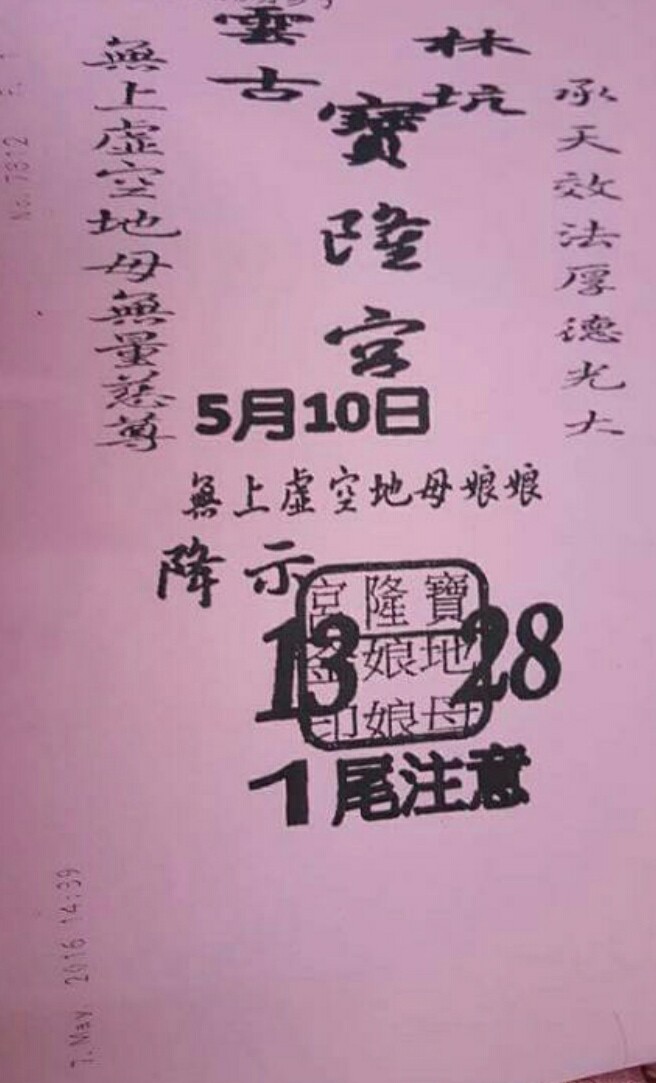 雲林
古坑
寶隆宮
承天效法厚德光大
無上虛空地母無量慈尊
5月10日
無上虛空地母娘娘
降示
寶隆宮
地娘
母娘印
13 28
1尾注意
No. 7812
7. May. 2016 14:39